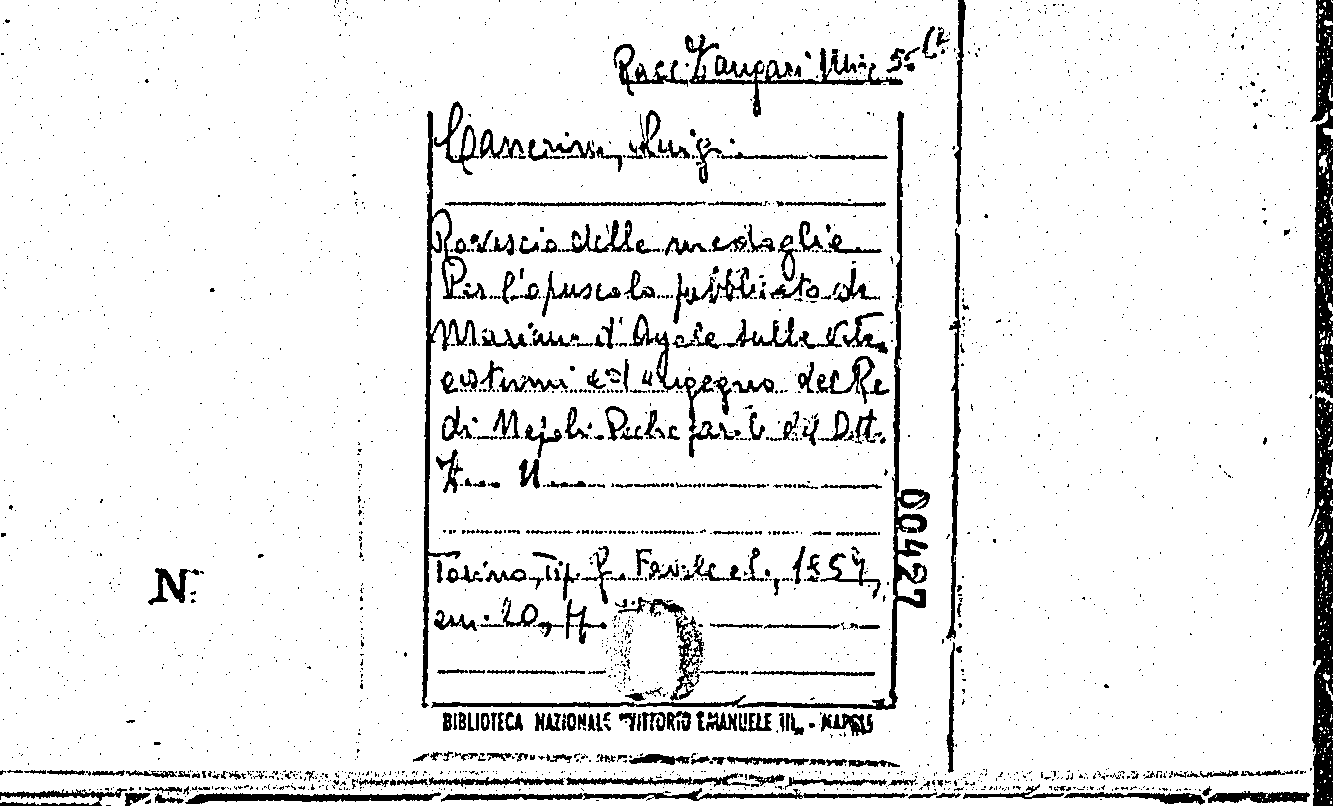 Racc. Zangari Misc
Mancrini, Luigi.
Rovescio delle medaglie.
Per l'opuscolo pubblicato da
Mariano d'Ayala sulla vita,
costumi ed ingegno del Re
di Napoli. Poche parole del Dott.
Z.... N....
Torino, Tip. G. Favale e C., 1857,
cm. 20,
BIBLIOTECA NAZIONALE "VITTORIO EMANUELE III" - NAPOLI
00427
N.